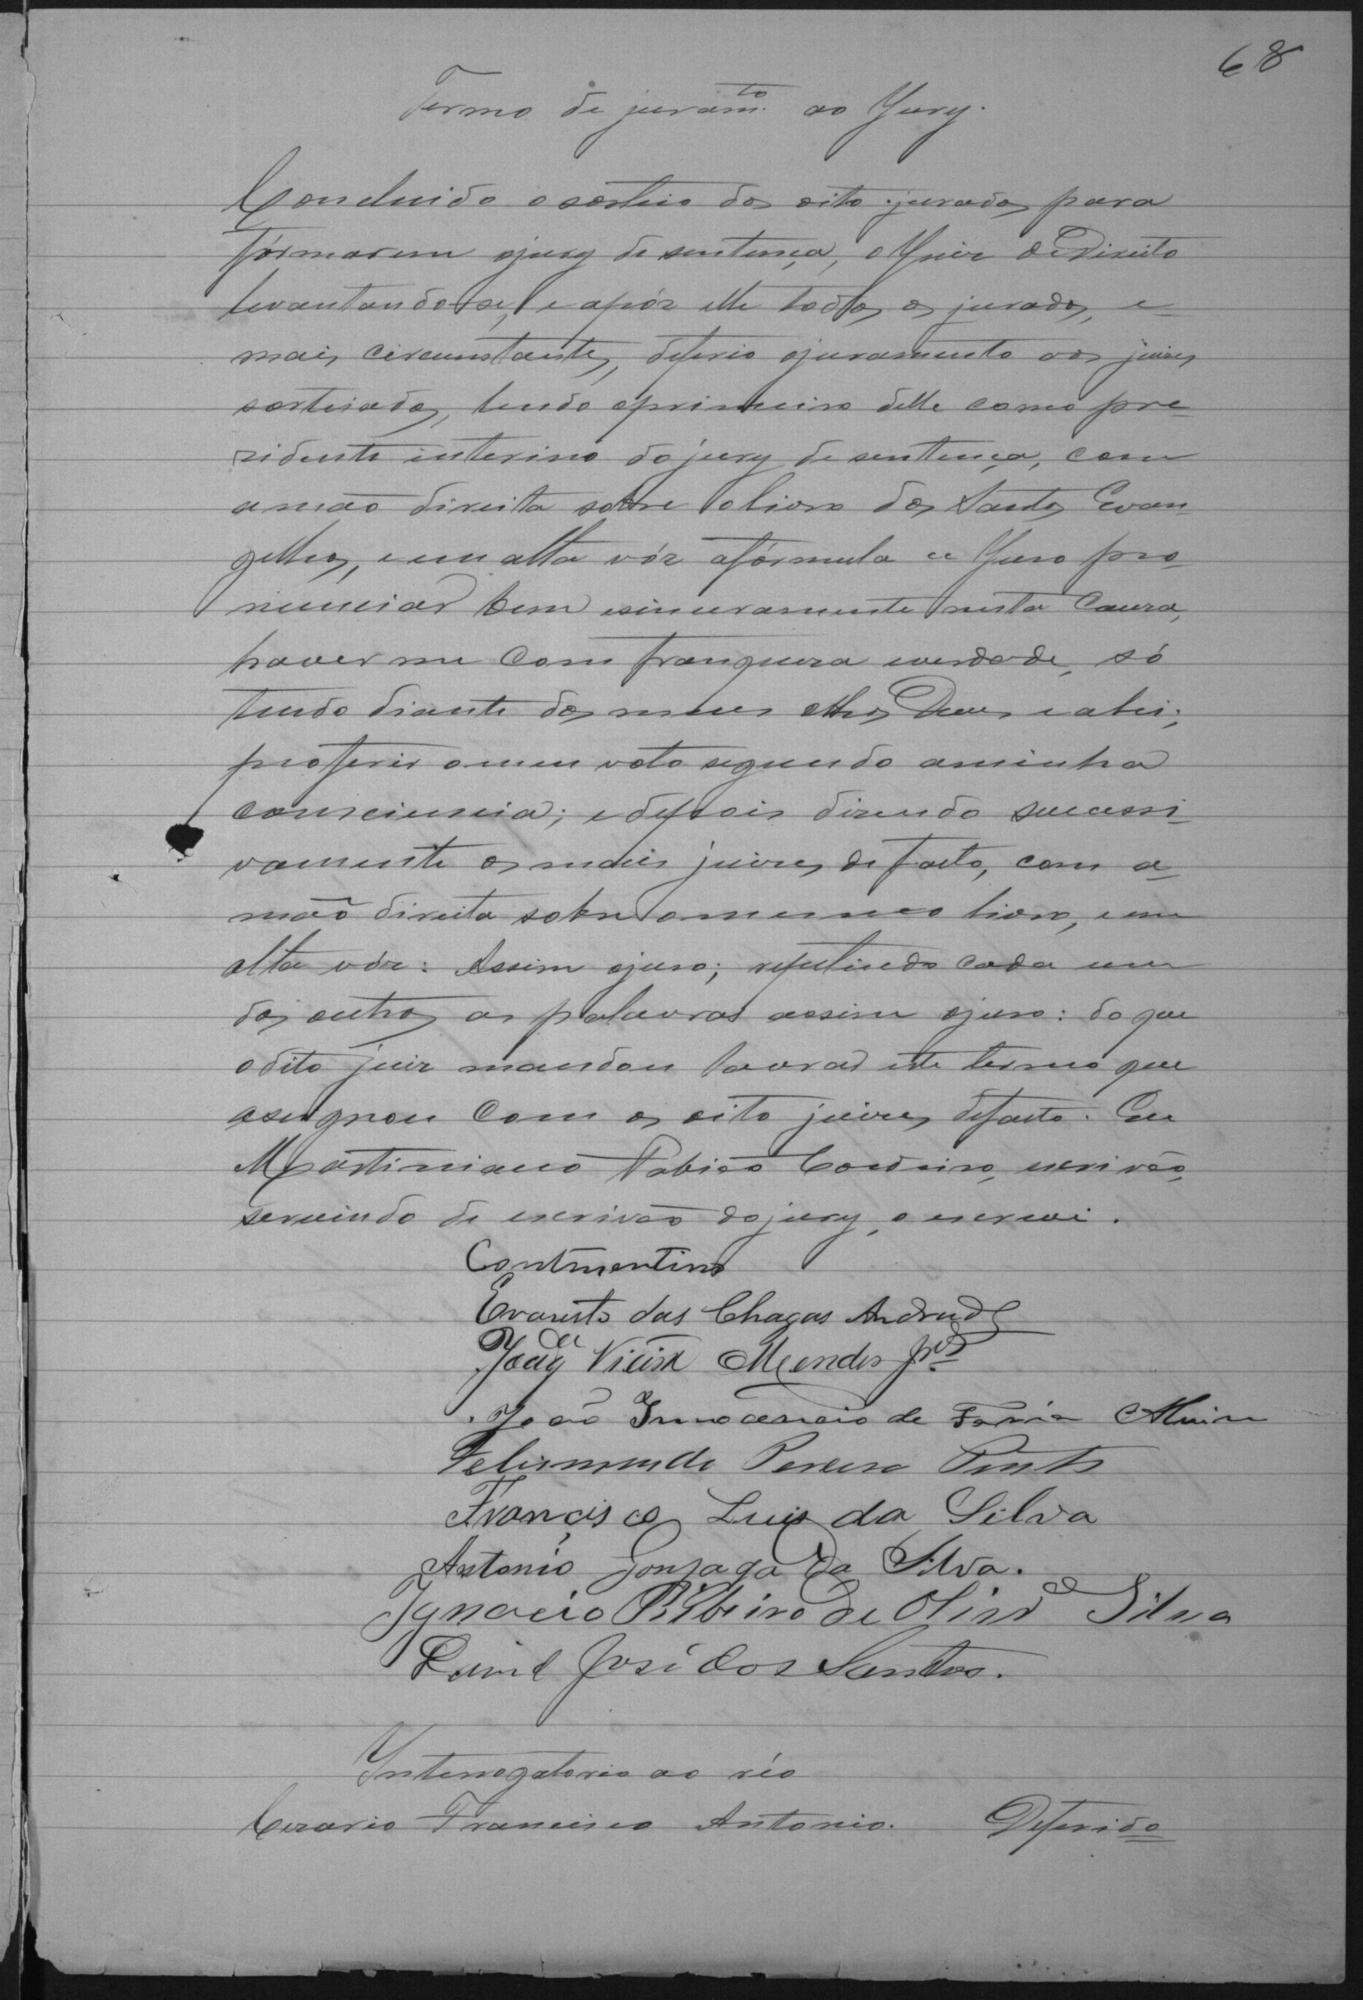 68
Termo de juram.to ao Jury.
Concluido o sorteio dos oito jurados para
formarem o jury de sentença, o Juiz de Direito
levantando-se, e apóz elle todos os jurados, e
mais circumstantes, deferio o juramento aos juizes
sorteiados, lendo o primeiro delle como pre-
zidente interino do jury de sentença, com
a mão direita sobre o livro dos Santos Evan-
gelhos, e em alta vóz a fórmula « Juro pro-
nunciar bem e sinceramente nesta Causa,
haver me com franqueza e verdade, só
tendo diante dos meus olhos Deus e a lei;
proferir o meu voto segundo a minha
consciencia; e depois dizendo successi-
vamente os mais juizes de facto, com a
mão direita sobre o mesmo livro, e em
alta vóz: Assim o juro; repetindo cada um
dos outros as palavras assim o juro: do que
o dito juiz mandou lavrar este termo que
assignou com os oito juizes de facto. Eu
Martiniano Cordeiro, escrivão,
servindo de escrivão do jury, o escrevi.
Evaristo das Chagas Andrade
Joaq.m Vieira Mendes J.or
João Innocencio de Faria Alvim
Pereira Pinto
Francisco Luis da Silva
Antonio Gonzaga da Silva.
Ignacio Ribeiro de Oliv.ra Silva
David José dos Santos.
Interrogatorio ao réo
Cezario Francisco Antonio. Deferido